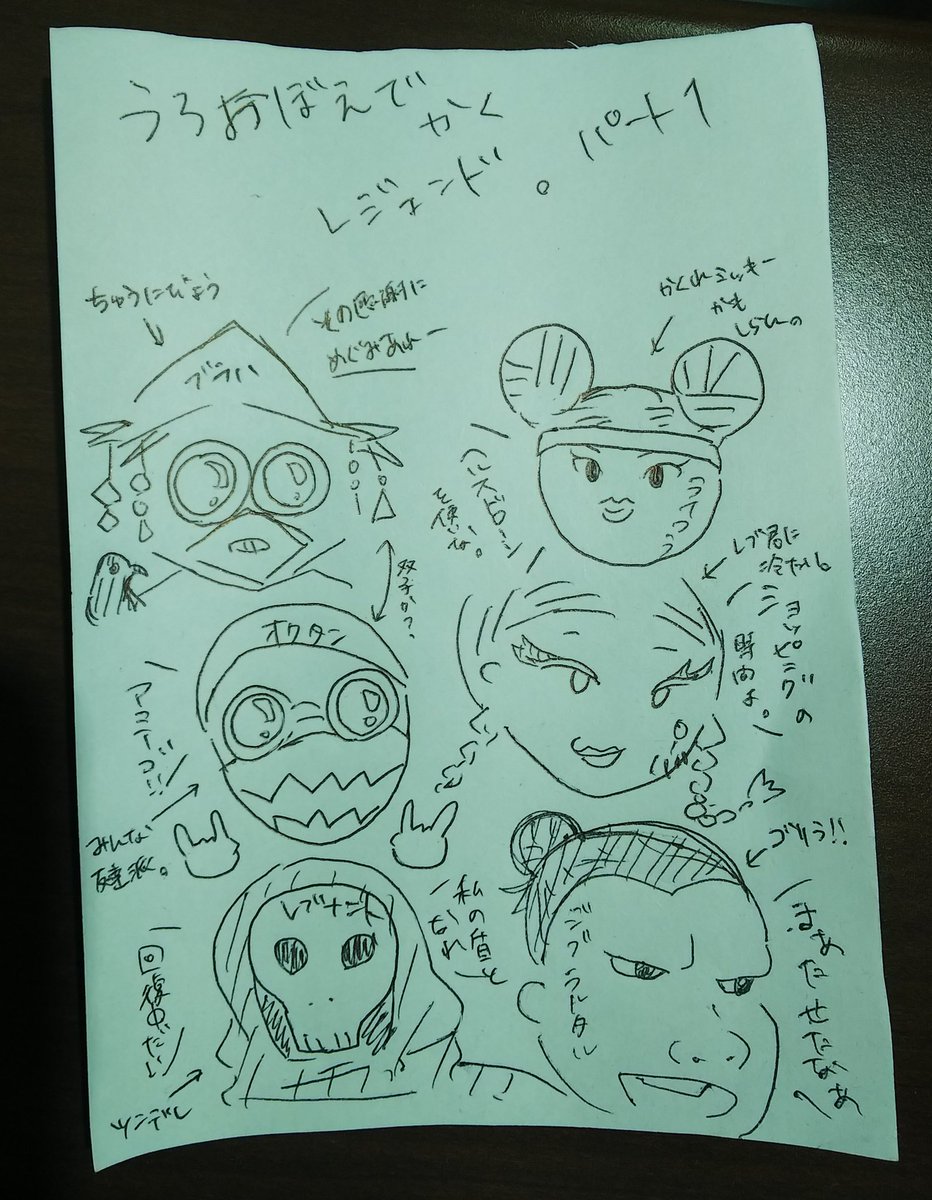 うろおぼえで
かく
レジェンド。パート1
ちゅうにびょう
その感謝に
めぐみあれー
ブラハ
かくれミッキー
かも
しらねーの
ヘルスドローン
を使いな。
双子か?
オクタン
アミーゴ!!
みんな
友達派。
レブ君に
冷たい。
ショッピングの
時間よ。
レブナント
私の貸と
なれ
回復中だい
ツンデレ
ゴリラ!!
ジブラルタル
またせたなあ